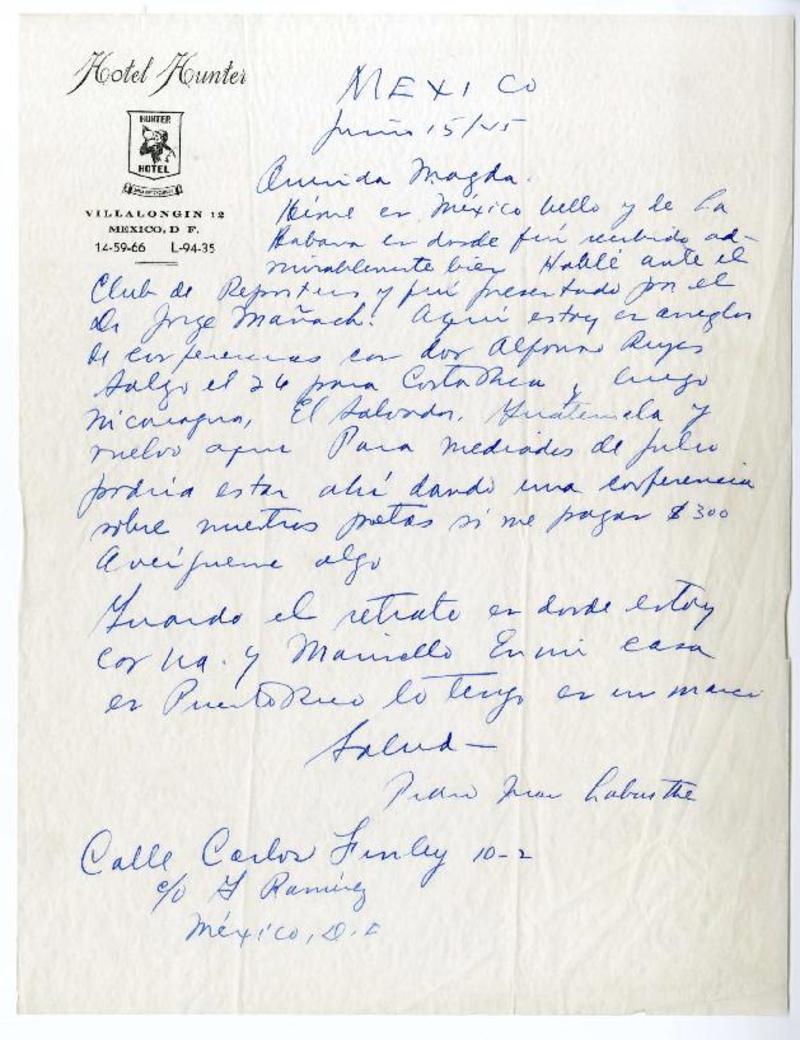 Hotel Hunter
HUNTER
HOTEL
VILLALONGIN 12
MEXICO, D F.
14-59-66 L-94-35
MEXICO
Junio 15/45
Querida Magda.
Héme en México bello y de La
Habana en donde fuí recibido ad-
mirablemente bien Hablé ante el
Club de Reporters y fuí presentado por el
Dr Jorge Mañach. Aquí estoy en arreglos
de conferencias con don Alfonso Reyes
Salgo el 26 para Costa Rica y luego
Nicaragua, El Salvador, Guatemala y
vuelvo aquí Para mediados de julio
podría estar ahí dando una conferencia
sobre nuestros poetas si me pagan $300
Averígueme algo
Guardo el retrato en donde estoy
con Ud. y Marinello En mi casa
en Puerto Rico lo tengo en un marco
Salud—
Pedro Juan Labarthe
Calle Carlos Finley 10-2
c/o G Ramírez
México, D.F